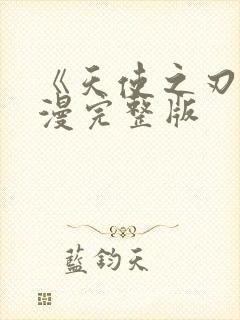 《天使之刃
漫完整版
蓝钧天